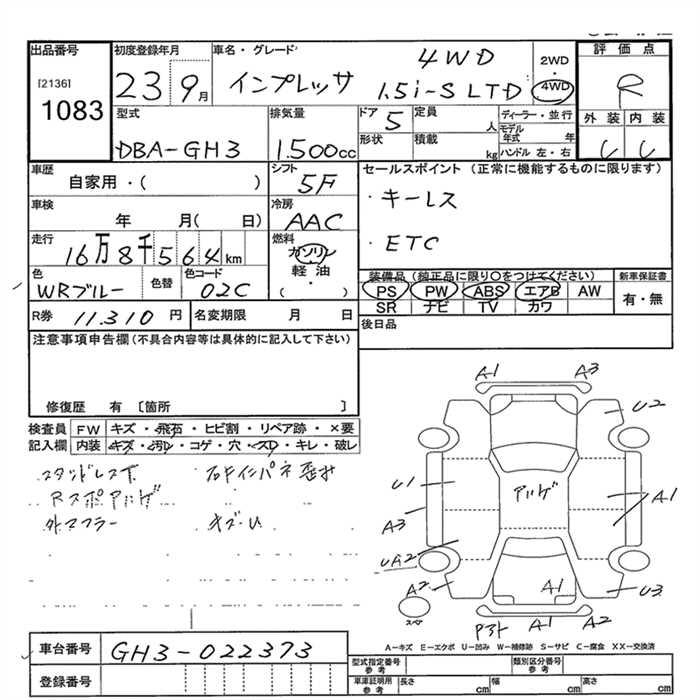 出品番号 初度登録年月 車名・グレード 4WD 2WD・4WD 評価点
[2136] 1083 23 9月 インプレッサ 1.5i-S LTD R
型式 排気量 ドア 5 定員 人 ディーラー・並行 外装 内装
DBA-GH3 1.500cc 形状 積載 kg モデル年式 年 ハンドル 左・右 C C
車歴 シフト セールスポイント(正常に機能するものに限ります)
自家用・( ) 5F ・キーレス
車検 冷房
年 月( 日) AAC ・ETC
走行 燃料
16万8千564km ガソリン
色 色替 色コード 軽油・ 装備品(純正品に限り○をつけてください) 新車保証書
WRブルー 02C ( ) PS PW ABS エアB AW 有・無
SR ナビ TV カワ
R券 11.310円 名変期限 月 日 後日品
注意事項申告欄(不具合内容等は具体的に記入して下さい)
修復歴 有 [箇所 ]
検査員 FW キズ・飛石・ヒビ割・リペア跡・×要
記入欄 内装 キズ・汚レ・コゲ・穴・スレ・キレ・破レ
外マフラー キズ・U
A1 A3
U2
U1 A1
A3
UA2
A2 A1 U3
スペア A1 A2
A-キズ E-エクボ U-凹み W-補修跡 S-サビ C-腐食 XX-交換済
車台番号 GH3-022373
型式指定番号 参考 類別区分番号 参考
登録番号 車庫証明用 参考 長さ cm 幅 cm 高さ cm